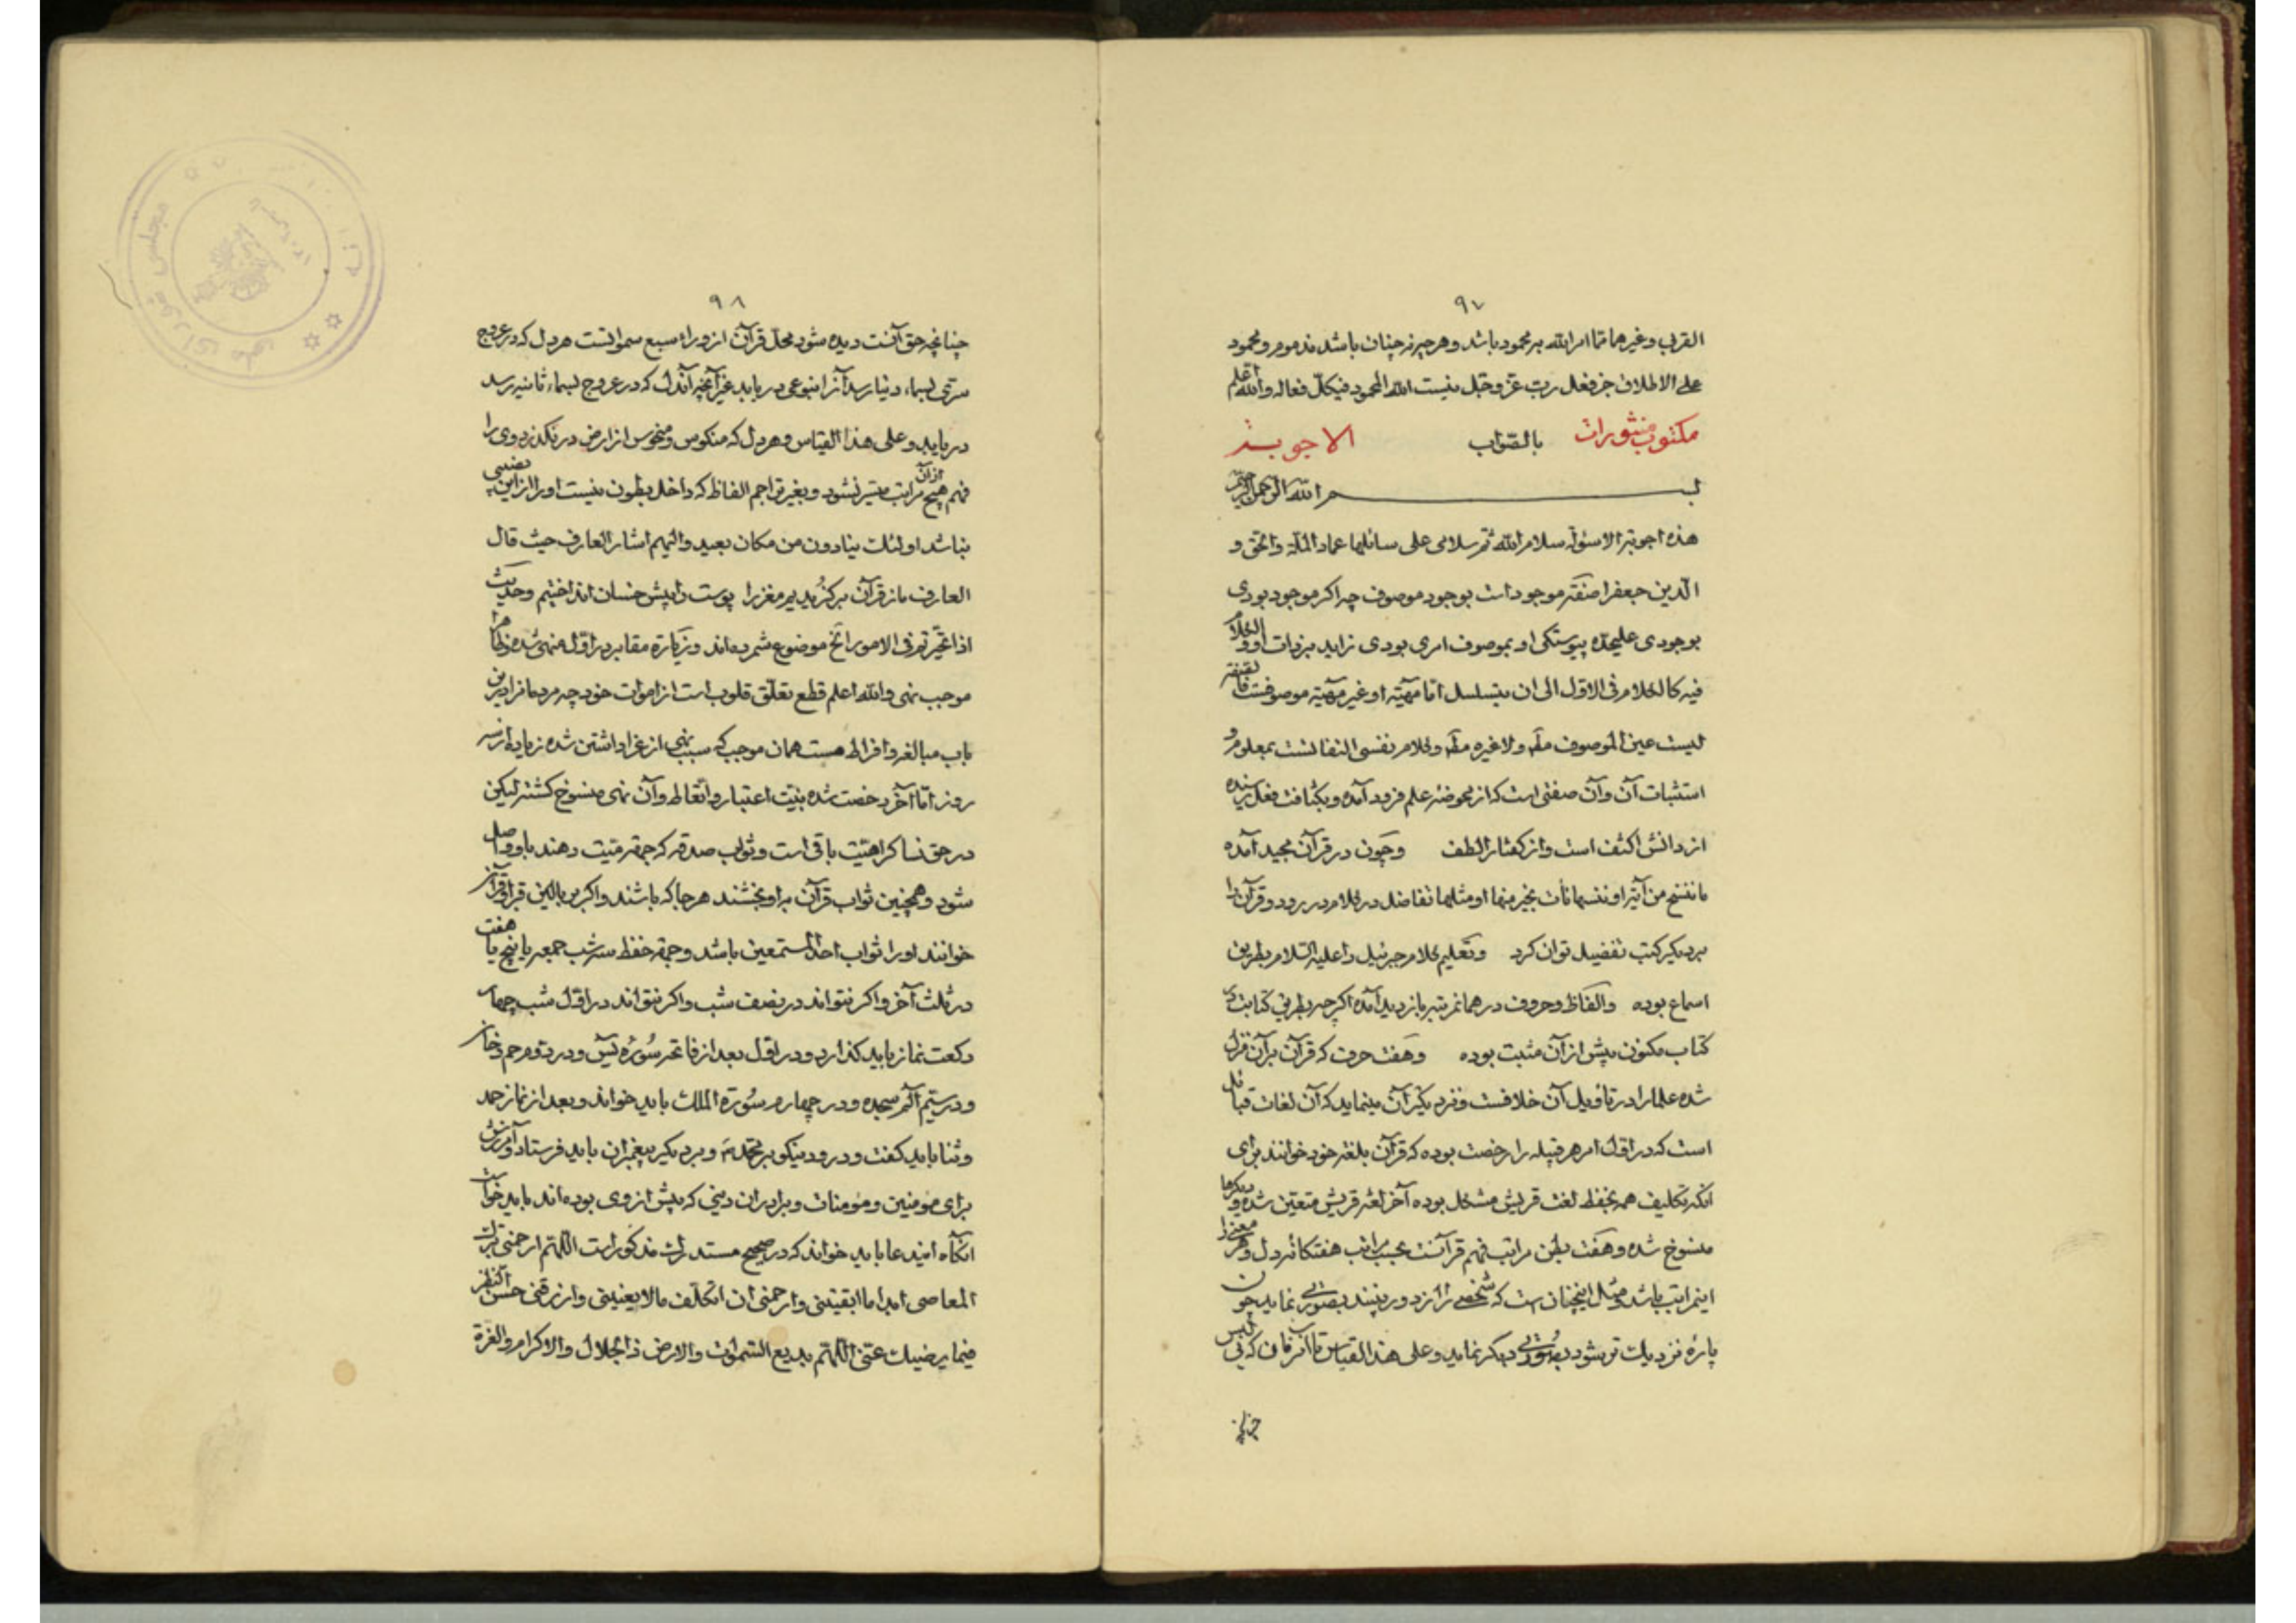 ۹۷
القربی وغیرها تماامرالله بر محمود باشد وهرچیز نه چنان باشد مذموم ومحمود
علی الاطلاق جز فعل رب عزّ وجّل نیست الله المحمود فی کلّ فعاله والله اعلم
مکتوب منثورات بالصّواب الاجوبـة
بسـم الله الرّحمن الرّحیم
هذه اجوبة الاسئولة سلام الله ثم سلامی علی سائلیها عماد الملّة والحق و
الدّین جعفرا صفة موجود است بوجود موصوف چه اگر موجود بودی
بوجودی علیحدّه پیوستگی او بموصوف امری بودی زاید بر ذات او والکلام
فیه کالکلام فی الاوّل الی ان یتسلسل امّا مهیّة او غیر مهیّة موصوفست
لیست عین الموصوف ولا غیره وکلام نفسی النفا لشت بمعلوم و
استثبات آن وآن صفتی است که از محوضهٔ علم فرود آمده وبکثافت فعل نرسیده
از دانش اکثف است واز گفتار الطف وچون در قرآن مجید آمده
ما ننسخ من آیة او ننسها نأت بخیر منها او مثلها تفاضل در کلام در رود وقرآن را
بر دیگر کتب تفضیل توان کرد وتعلیم کلام جبرئیل را علیه السّلام بطریق
اسماع بوده والفاظ وحروف در همان مرتبه باز دید آمده اگر چه بطریق کتابت در
کتاب مکنون پیش از آن مثبت بوده وهفت حرف که قرآن بر آن نزل
شده علما را در تاویل آن خلافست ونزدیکتر آن مینماید که آن لغات قبائل
است که در اوّل امر هر قبیله را رخصت بوده که قرآن بلغة خود خوانند برای
انکه تکلیف همه بحفظ لغت قریش مشکل بوده آخر لغة قریش متعیّن شده ودیگرها
منسوخ شده وهفت بطن مراتب فهم قرآنست بحسب مراتب هفتگانه دل وهر معنی را
این مراتب باشد ومثال اینچنان است که شخصی را از دور بینند بصورتی نماید چون
پارهٔ نزدیک تر شود بصورتی دیگر نماید وعلی هذا القیاس تا آنزمان که بی لبس
چنانچه
۹۸
چنانچه حق آنست دیده شود محلّ قرآن از وراء سبع سموانست هر دل که در عروج
سرّی بسماء دنیا رسد آنرا بنوعی دریابد غیر آنچه آن دل که در عروج بسماء ثانیه رسد
دریابد وعلی هذا القیاس وهر دل که منکوس ومنحوس از ارض در نگذرد وی را
فهم هیچ از آن مراتب میّسر نشود وبغیر تراجم الفاظ که داخل بطون نیست اورا از این نصیبی
نباشد اولئک ینادون من مکان بعید والیهم اشار العارف حیث قال
العارف ما ز قرآن برگزیدیم مغز را پوست را پیش خسان انداختیم وحدیث
اذا تحیّرتم فی الامور الخ موضوع شمرده‌اند وزیارة مقابر در اوّل منهی شده
موجب نهی والله اعلم قطع تعلّق قلوب است از اموات خود چه مردمانرا در این
باب مبالغه وافراط هست همان موجب که سبب نهی از عزا داشتن شده زیاده از سه
روز امّا آخر رخصت شده بنیّت اعتبار واتّعاظ وآن نهی منسوخ گشته لیکن
در حق نسا کراهیّت باقی است وثواب صدقه که جهة میّت دهند باو واصل
شود وهمچنین ثواب قرآن باو بخشند هر جا که باشند واگر بر بالین قبر او قرآن
خوانند اورا ثواب احد المستمعین باشد وجهة حفظ سه شب جمعه یا پنج یا هفت
در ثلث آخر واگر نتواند در نصف شب واگر نتواند در اوّل شب چهار
رکعت نماز باید گذارد ودر اوّل بعد از فاتحه سورهٔ یس ودر دوم حم دخان
ودر سیّم آلم سجده ودر چهارم سورة الملک باید خواند وبعد از نماز حمد
وثنا باید گفت ودرود نیکو بر محمّد وبر دیگر پیغمبران باید فرستاد وآمرزش
برای مؤمنین ومؤمنات وبرادران دینی که پیش از وی بوده‌اند باید خواست
انگاه این دعا باید خواند که در صحیح مستدرک مذکور است اللّهم ارحمنی بترک
المعاصی ابدا ما ابقیتنی وارحمنی ان اتکلّف ما لا یعنینی وارزقنی حسن النظر
فیما یرضیک عنّی اللّهم بدیع السّموات والارض ذا الجلال والاکرام والعزة
مجلس شورای ملی